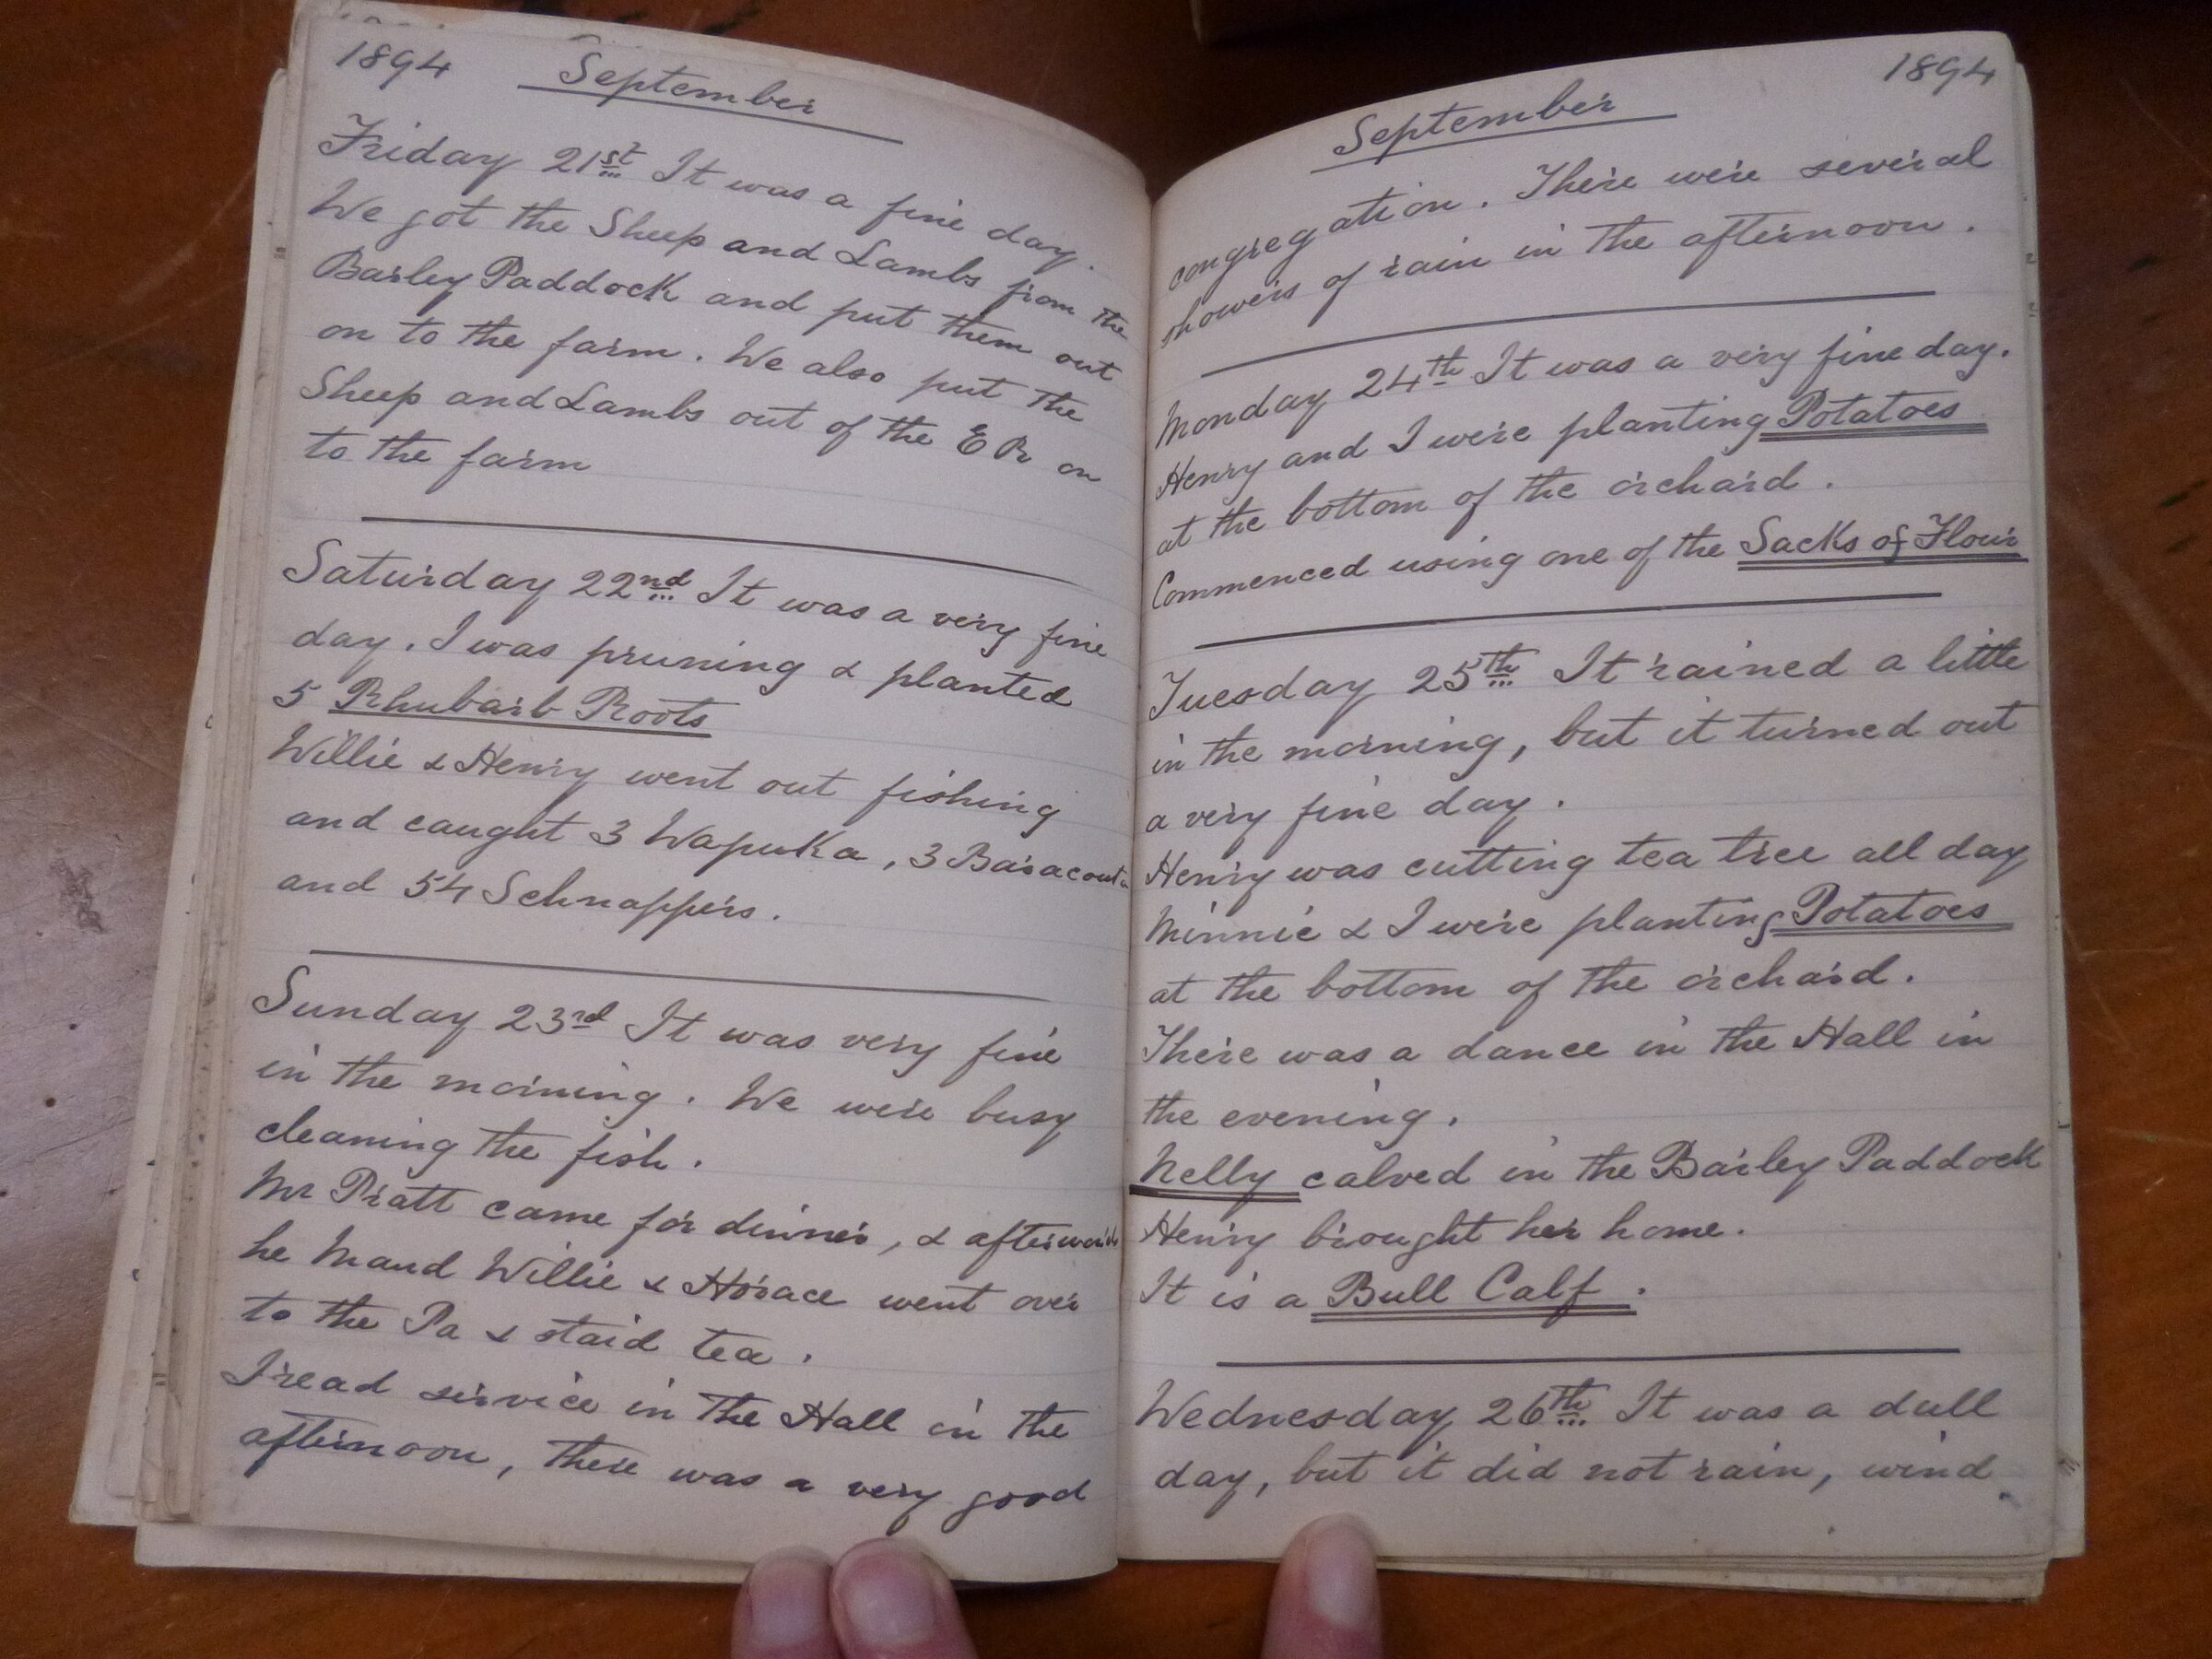 1894 September
Friday 21st It was a fine day.
We got the Sheep and Lambs from the
Barley Paddock and put them out
on to the farm. We also put the
Sheep and Lambs out of the E R on
to the farm
Saturday 22nd It was a very fine
day. I was pruning & planted
5 Rhubarb Roots
Willie & Henry went out fishing
and caught 3 Wapuka, 3 Baracouta
and 54 Schnappers.
Sunday 23rd It was very fine
in the morning. We were busy
cleaning the fish.
Mr Pratt came for dinner, & afterwards
he Maud Willie & Horace went over
to the Pa & staid tea.
I read service in the Hall in the
afternoon, there was a very good
September 1894
congregation. There were several
showers of rain in the afternoon.
Monday 24th It was a very fine day.
Henry and I were planting Potatoes
at the bottom of the orchard.
Commenced using one of the Sacks of Flour
Tuesday 25th It rained a little
in the morning, but it turned out
a very fine day.
Henry was cutting tea tree all day
Minnie & I were planting Potatoes
at the bottom of the orchard.
There was a dance in the Hall in
the evening.
Nelly calved in the Barley Paddock
Henry brought her home.
It is a Bull Calf.
Wednesday 26th It was a dull
day, but it did not rain, wind